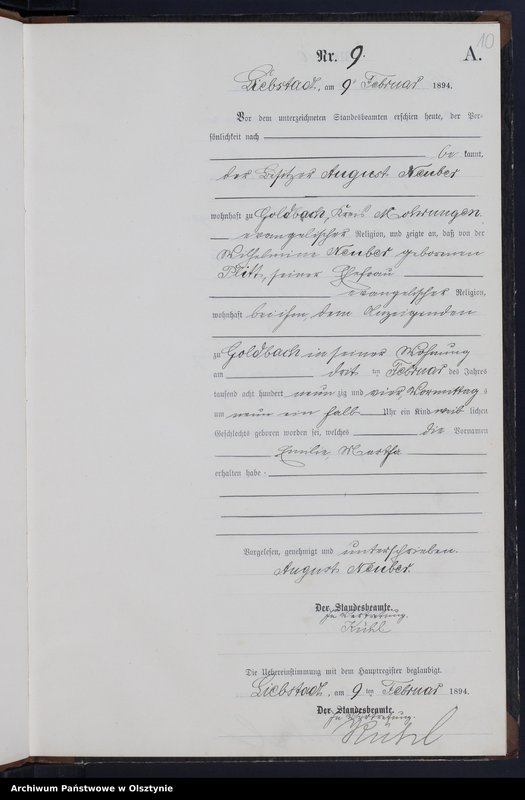 10
Nr. 9.
A.
Liebstadt, am 9ten Februar 1894.
Vor dem unterzeichneten Standesbeamten erschien heute, der Per-
sönlichkeit nach
be kannt,
der Besitzer August Neuber
wohnhaft zu Goldbach, Kreis Mohrungen
evangelischer Religion, und zeigte an, daß von der
Wilhelmine Neuber geborenen
Plitt, seiner Ehefrau
evangelischer Religion,
wohnhaft bei ihm, dem Anzeigenden
zu Goldbach in seiner Wohnung
am drei ten Februar des Jahres
tausend acht hundert neun zig und vier, Vormittag s
um neun ein halb Uhr ein Kind weib lichen
Geschlechts geboren worden sei, welches die Vornamen
Emilie, Martha
erhalten habe.
Vorgelesen, genehmigt und unterschrieben.
August Neuber.
Der Standesbeamte.
In Vertretung.
Kühl
Die Uebereinstimmung mit dem Hauptregister beglaubigt.
Liebstadt, am 9 ten Februar 1894.
Der Standesbeamte.
In Vertretung.
Kühl
Archiwum Państwowe w Olsztynie